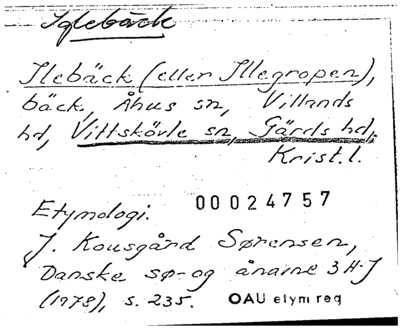 Iglebäck
Ilebäck (eller Illegropen),
bäck, Åhus sn, Villands
hd, Vittskövle sn, Gärds hd,
Krist. l.
00024757
Etymologi.
J. Kousgård Sørensen,
Danske sø- og ånavne 3 H-J
(1978), s. 235.
OAU etym reg